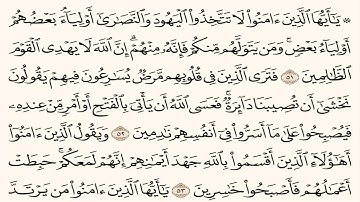 ۞ يَٰٓأَيُّهَا ٱلَّذِينَ ءَامَنُوا۟ لَا تَتَّخِذُوا۟ ٱلْيَهُودَ وَٱلنَّصَٰرَىٰٓ أَوْلِيَآءَ ۘ بَعْضُهُمْ
أَوْلِيَآءُ بَعْضٍ ۚ وَمَن يَتَوَلَّهُم مِّنكُمْ فَإِنَّهُۥ مِنْهُمْ ۗ إِنَّ ٱللَّهَ لَا يَهْدِى ٱلْقَوْمَ
ٱلظَّٰلِمِينَ ٥١ فَتَرَى ٱلَّذِينَ فِى قُلُوبِهِم مَّرَضٌ يُسَٰرِعُونَ فِيهِمْ يَقُولُونَ
نَخْشَىٰٓ أَن تُصِيبَنَا دَآئِرَةٌ ۚ فَعَسَى ٱللَّهُ أَن يَأْتِىَ بِٱلْفَتْحِ أَوْ أَمْرٍ مِّنْ عِندِهِۦ
فَيُصْبِحُوا۟ عَلَىٰ مَآ أَسَرُّوا۟ فِىٓ أَنفُسِهِمْ نَٰدِمِينَ ٥٢ وَيَقُولُ ٱلَّذِينَ ءَامَنُوٓا۟
أَهَٰٓؤُلَآءِ ٱلَّذِينَ أَقْسَمُوا۟ بِٱللَّهِ جَهْدَ أَيْمَٰنِهِمْ ۙ إِنَّهُمْ لَمَعَكُمْ ۚ حَبِطَتْ
أَعْمَٰلُهُمْ فَأَصْبَحُوا۟ خَٰسِرِينَ ٥٣ يَٰٓأَيُّهَا ٱلَّذِينَ ءَامَنُوا۟ مَن يَرْتَدَّ